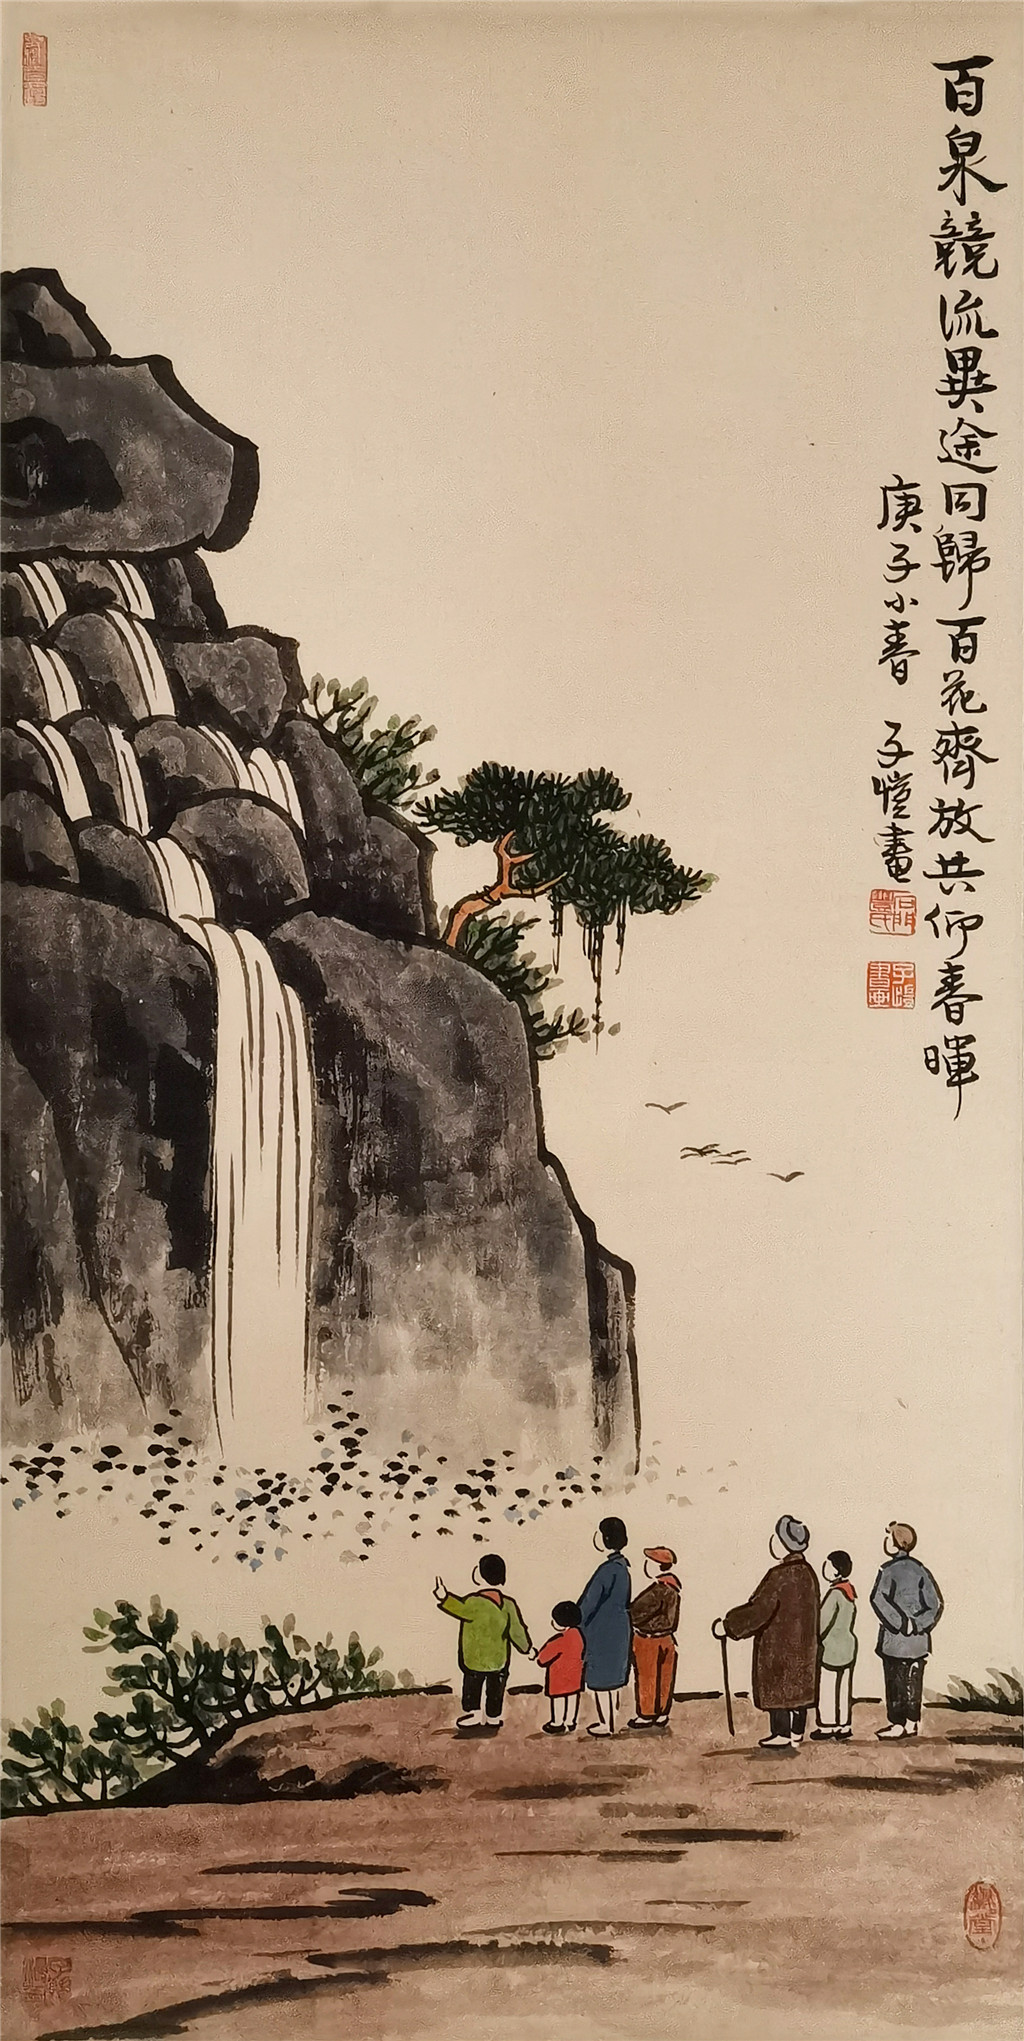 百泉競流異途同歸百花齊放共仰春暉
庚子小春 子愷畫
石門豐氏
子愷書畫